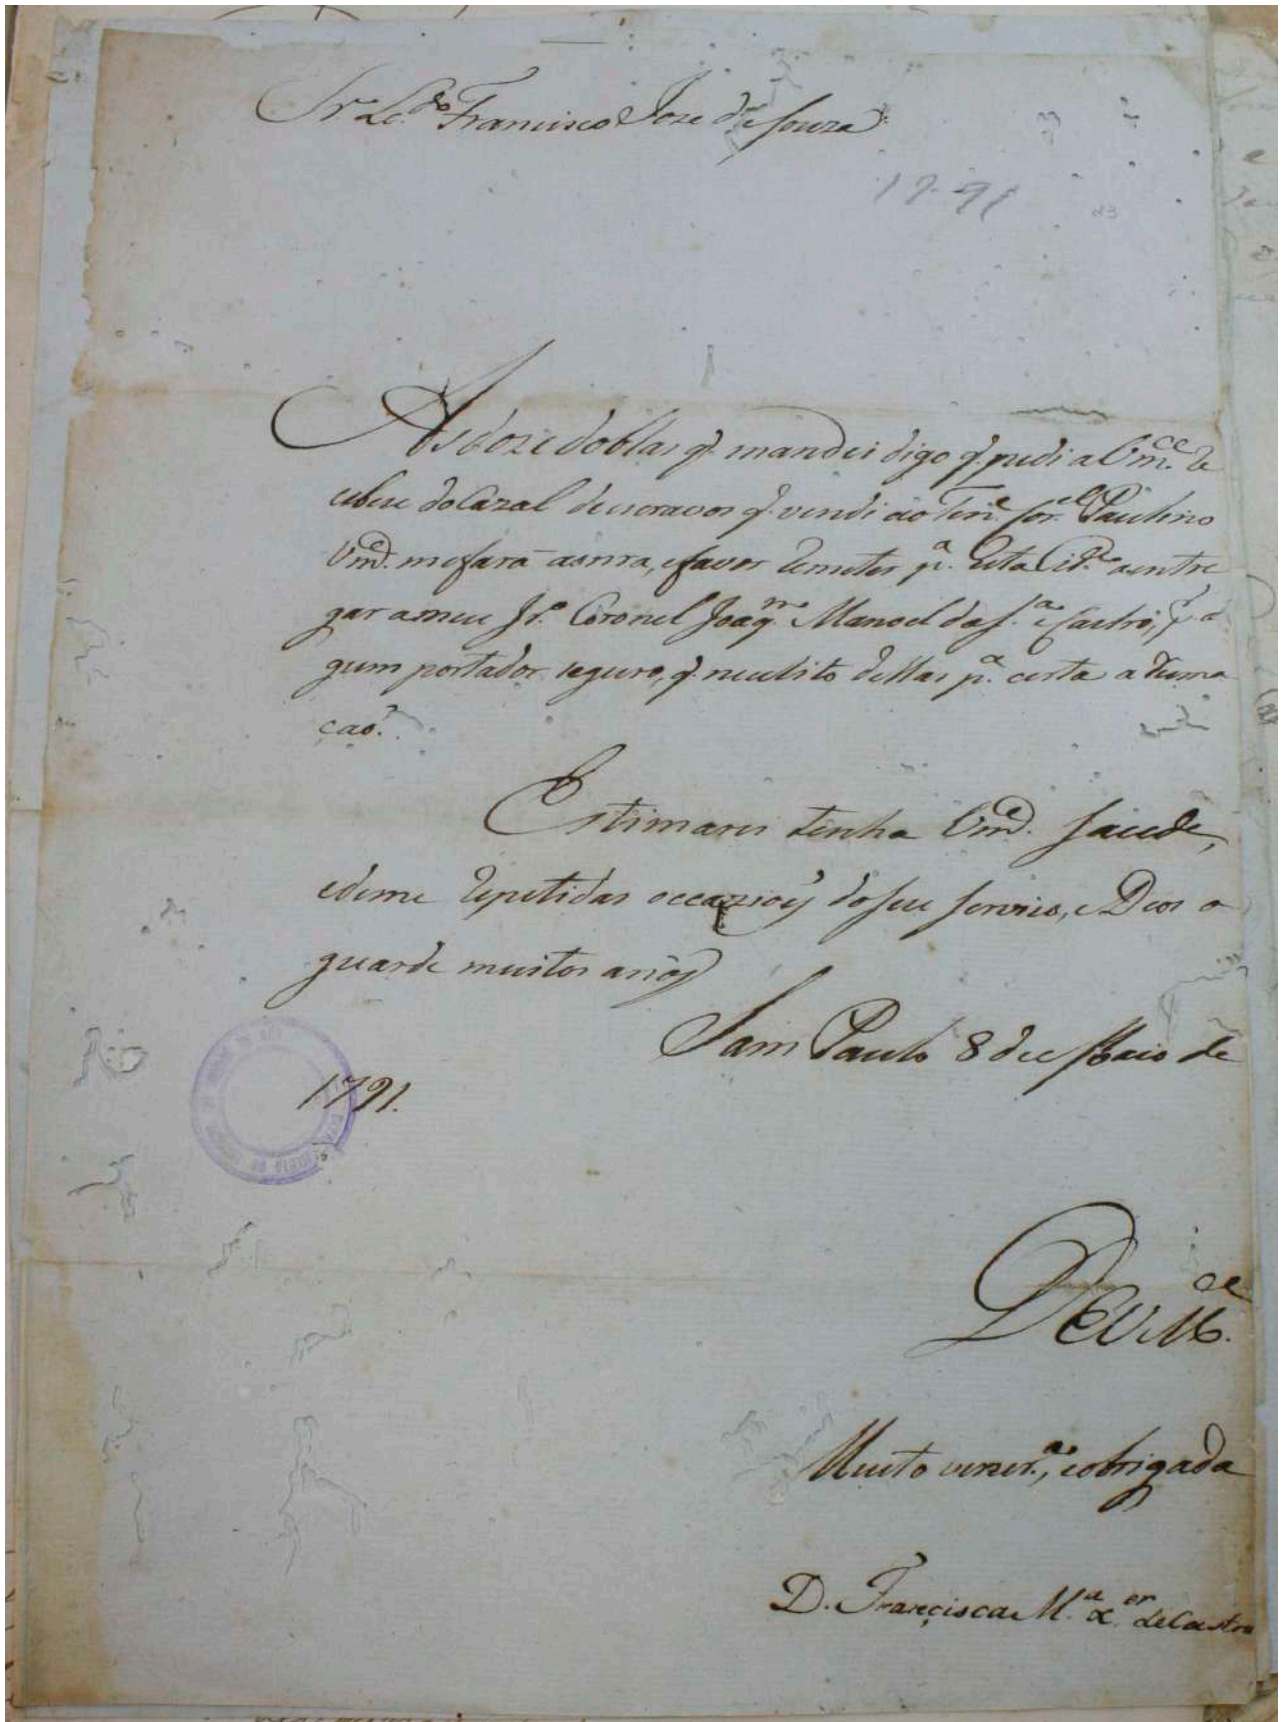 Sr. Lc.do Francisco Jose de Souza
1791
As doze doblas q. mandei digo q. pedi a Vm.ce Re
cebese do Cazal de escravos q. vendi ao Ten.e Cor.el Paulino
Vm.ce me fará a onra, e favor Remeter p.a Esta Cid.e a entre
gar a meu Ir.o Coronel Joaq.m Manoel da S.a e Castro, p.r a
gum portador seguro, q. necesito dellas p.a certa a Ruma
ção.
Estimarei tenha Vm.ce saude,
e deme Repetidas occazioẽs do seu serviço, e Deos o
guarde muitos anõs
Sam Paulo 8 de Maio de
1791.
De V. M.ce
Muito vener.a, e obrigada
D. Francisca M.a X.er de Castro